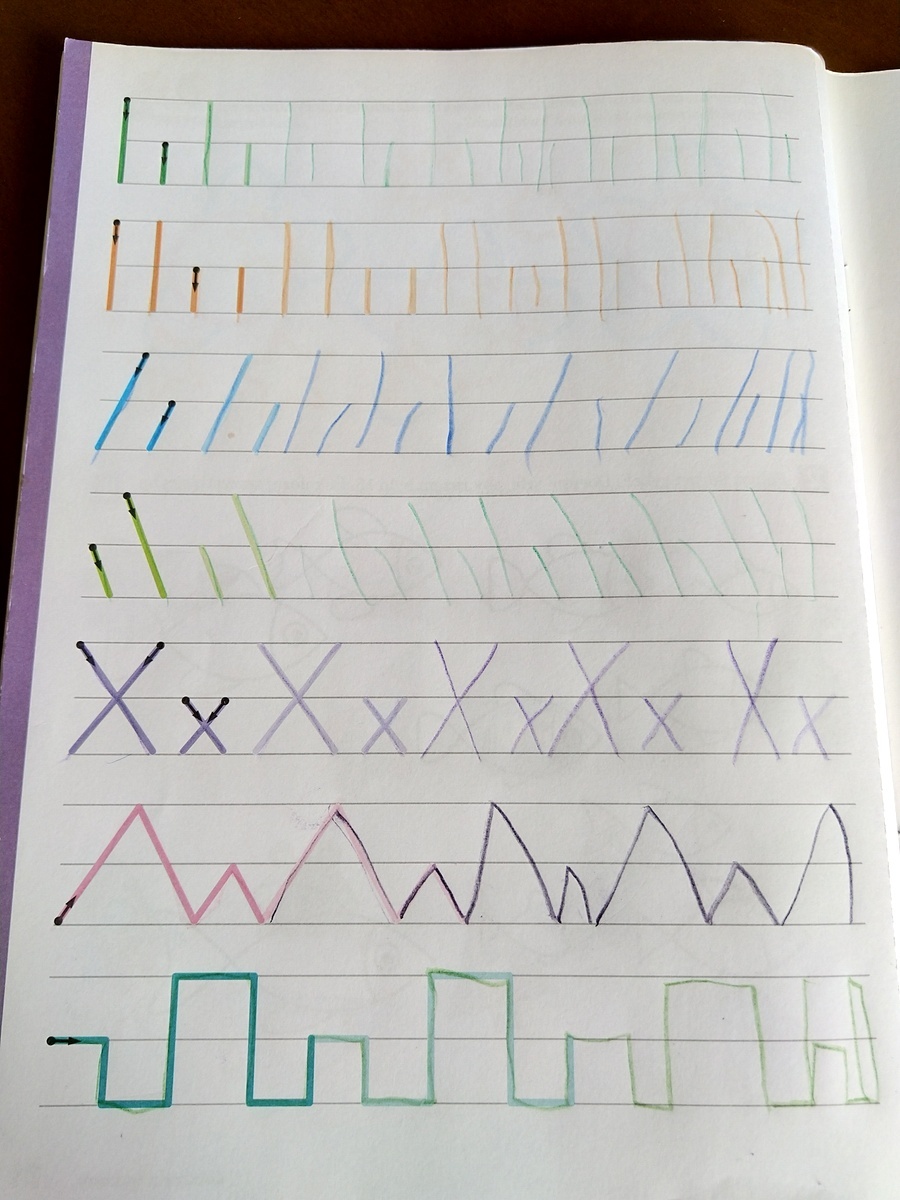 X x X x X x X x X x